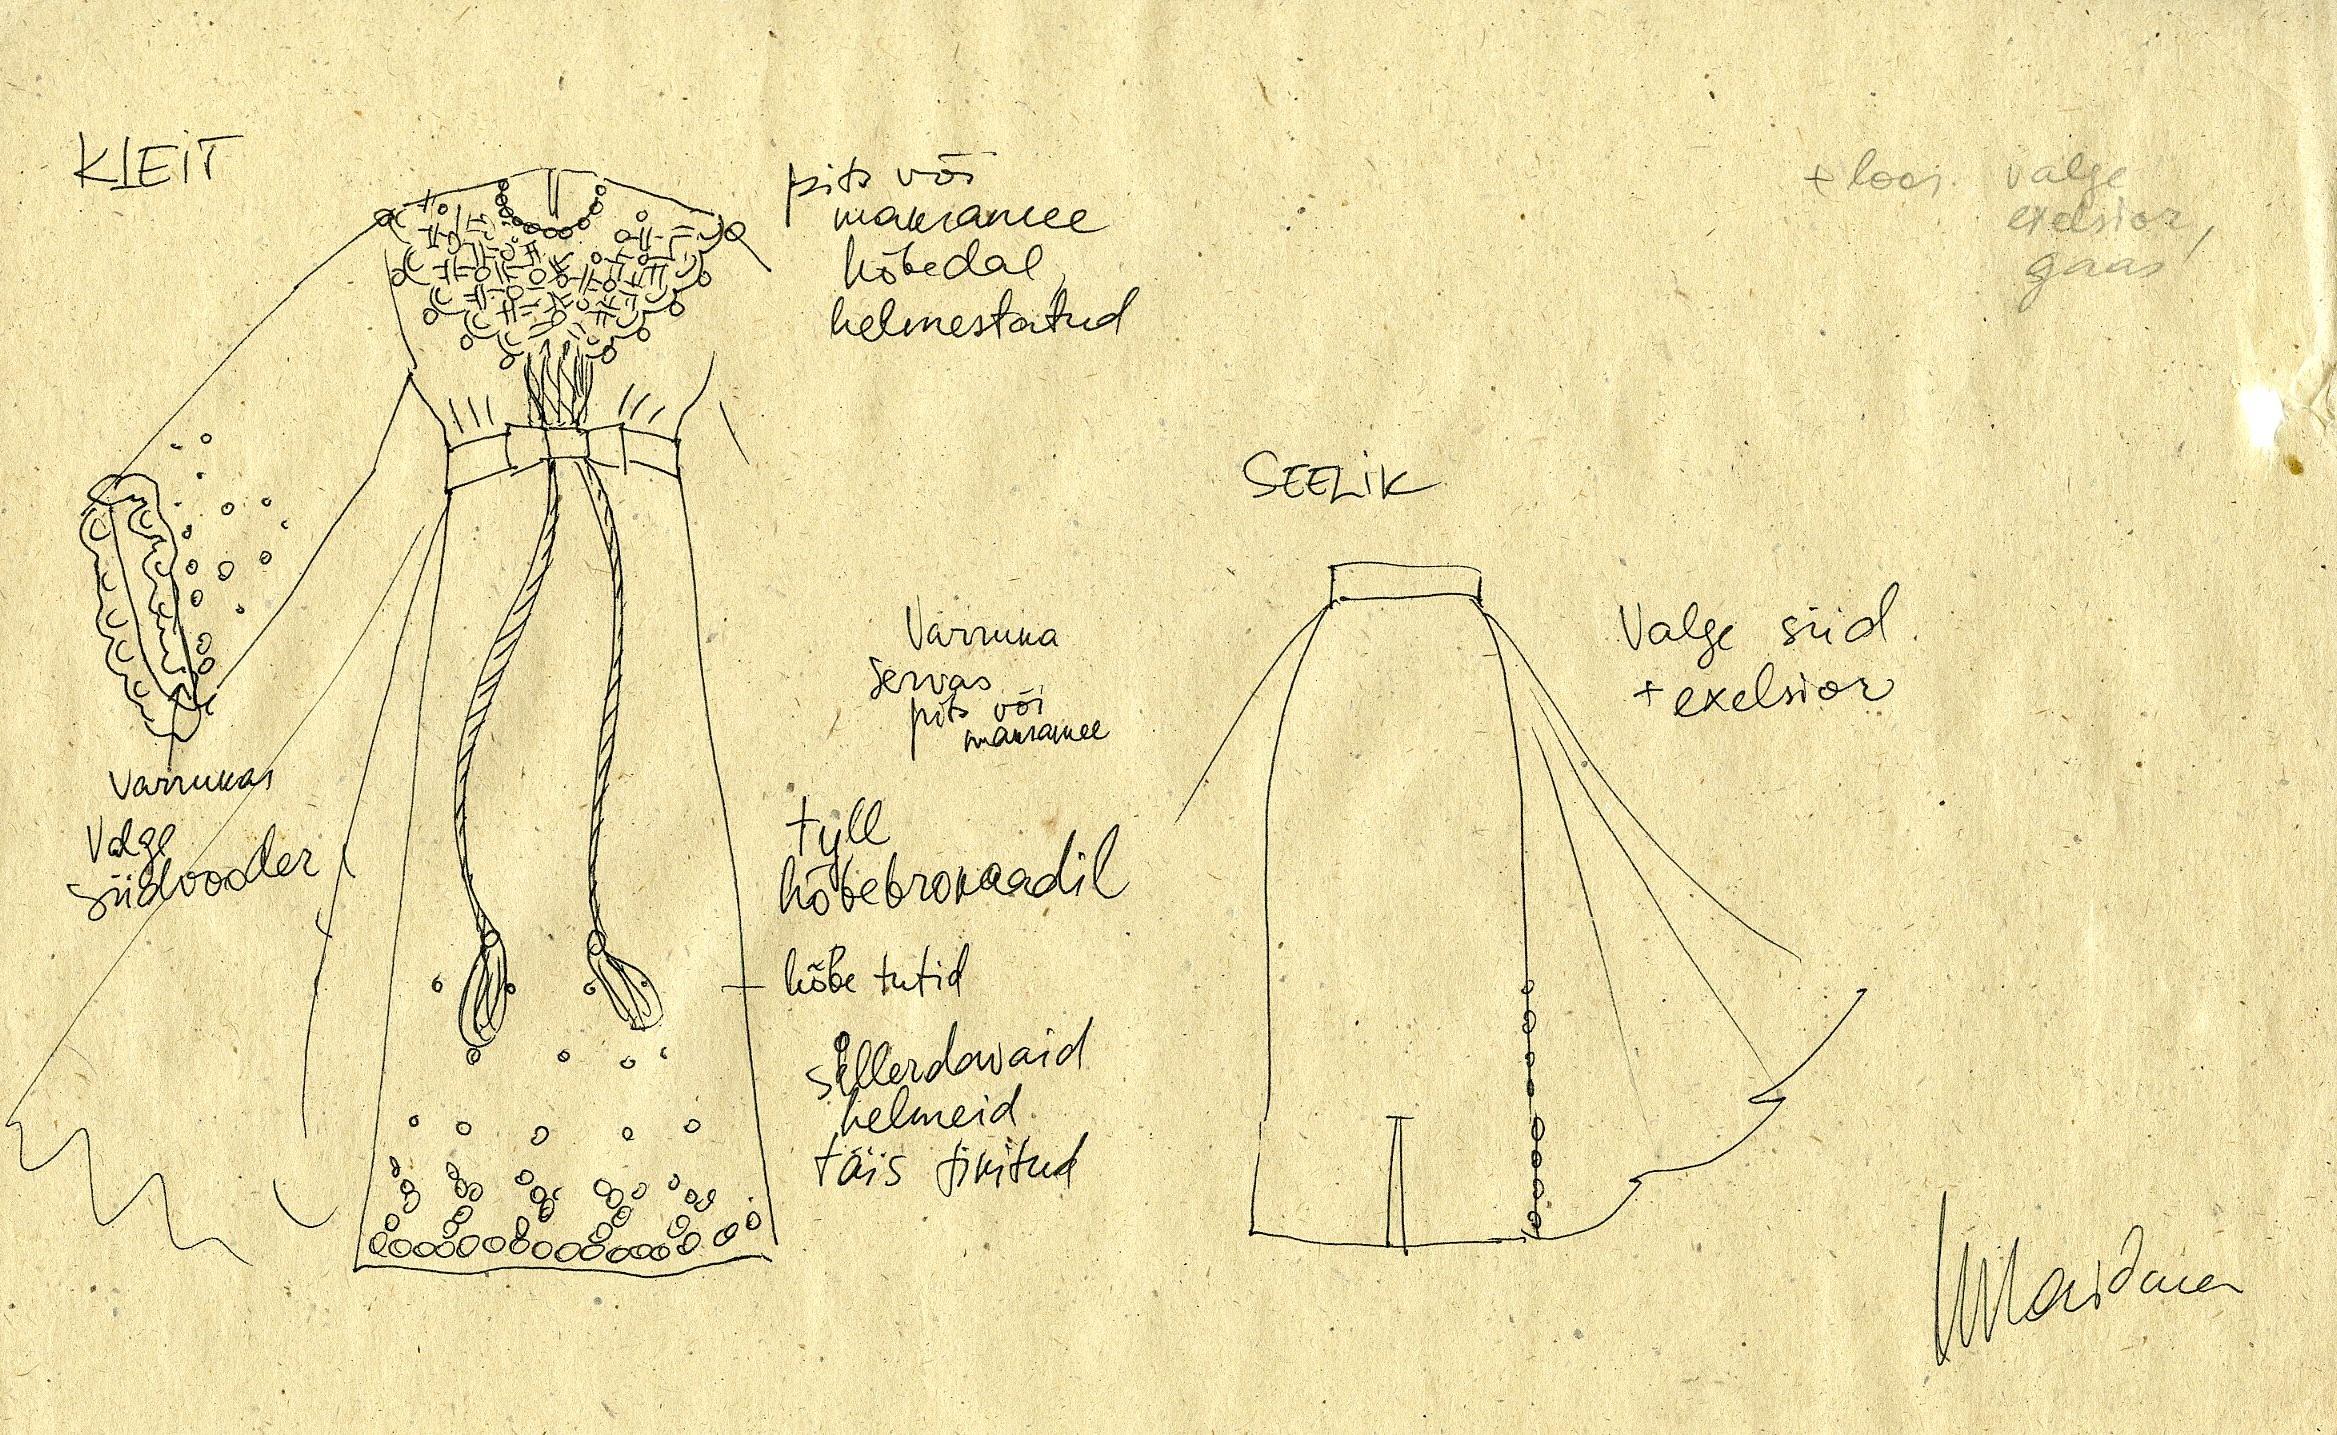 KLEIT
pits või
makramee
hõbedal,
helmestatud
+ loor valge
exelsior,
gaas
SEELIK
Valge siid
+ exelsior
Varruka
servas
pits või
makramee
varrukas
Valge
siidvooder
tyll
hõbebrokaadil
hõbe tutid
sillerdavaid
helmeid
täis tikitud